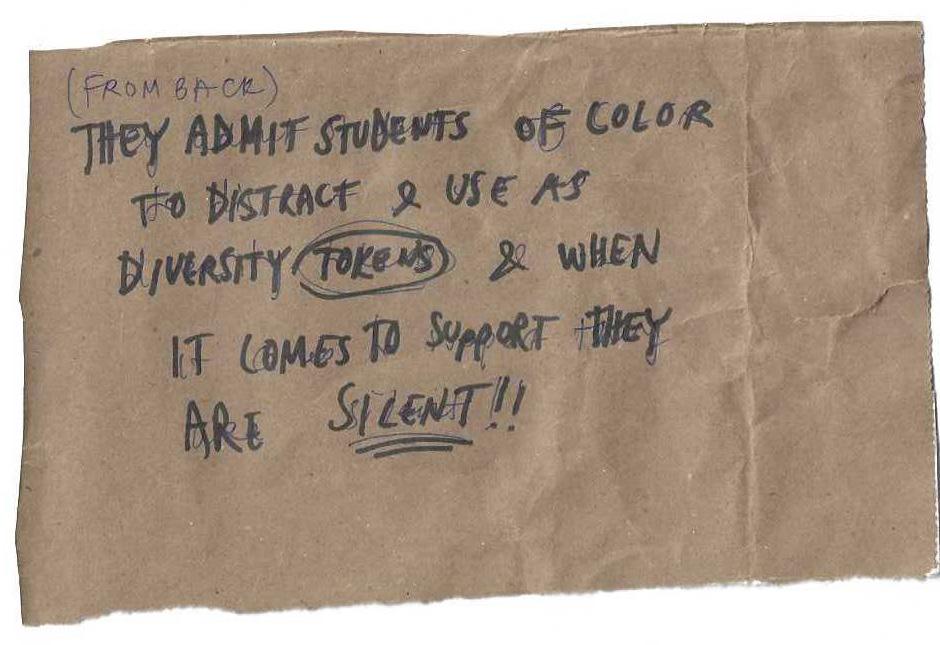 (FROM BACK)
THEY ADMIT STUDENTS OF COLOR
TO DISTRACT & USE AS
DIVERSITY TOKENS & WHEN
IT COMES TO SUPPORT THEY
ARE SILENT!!